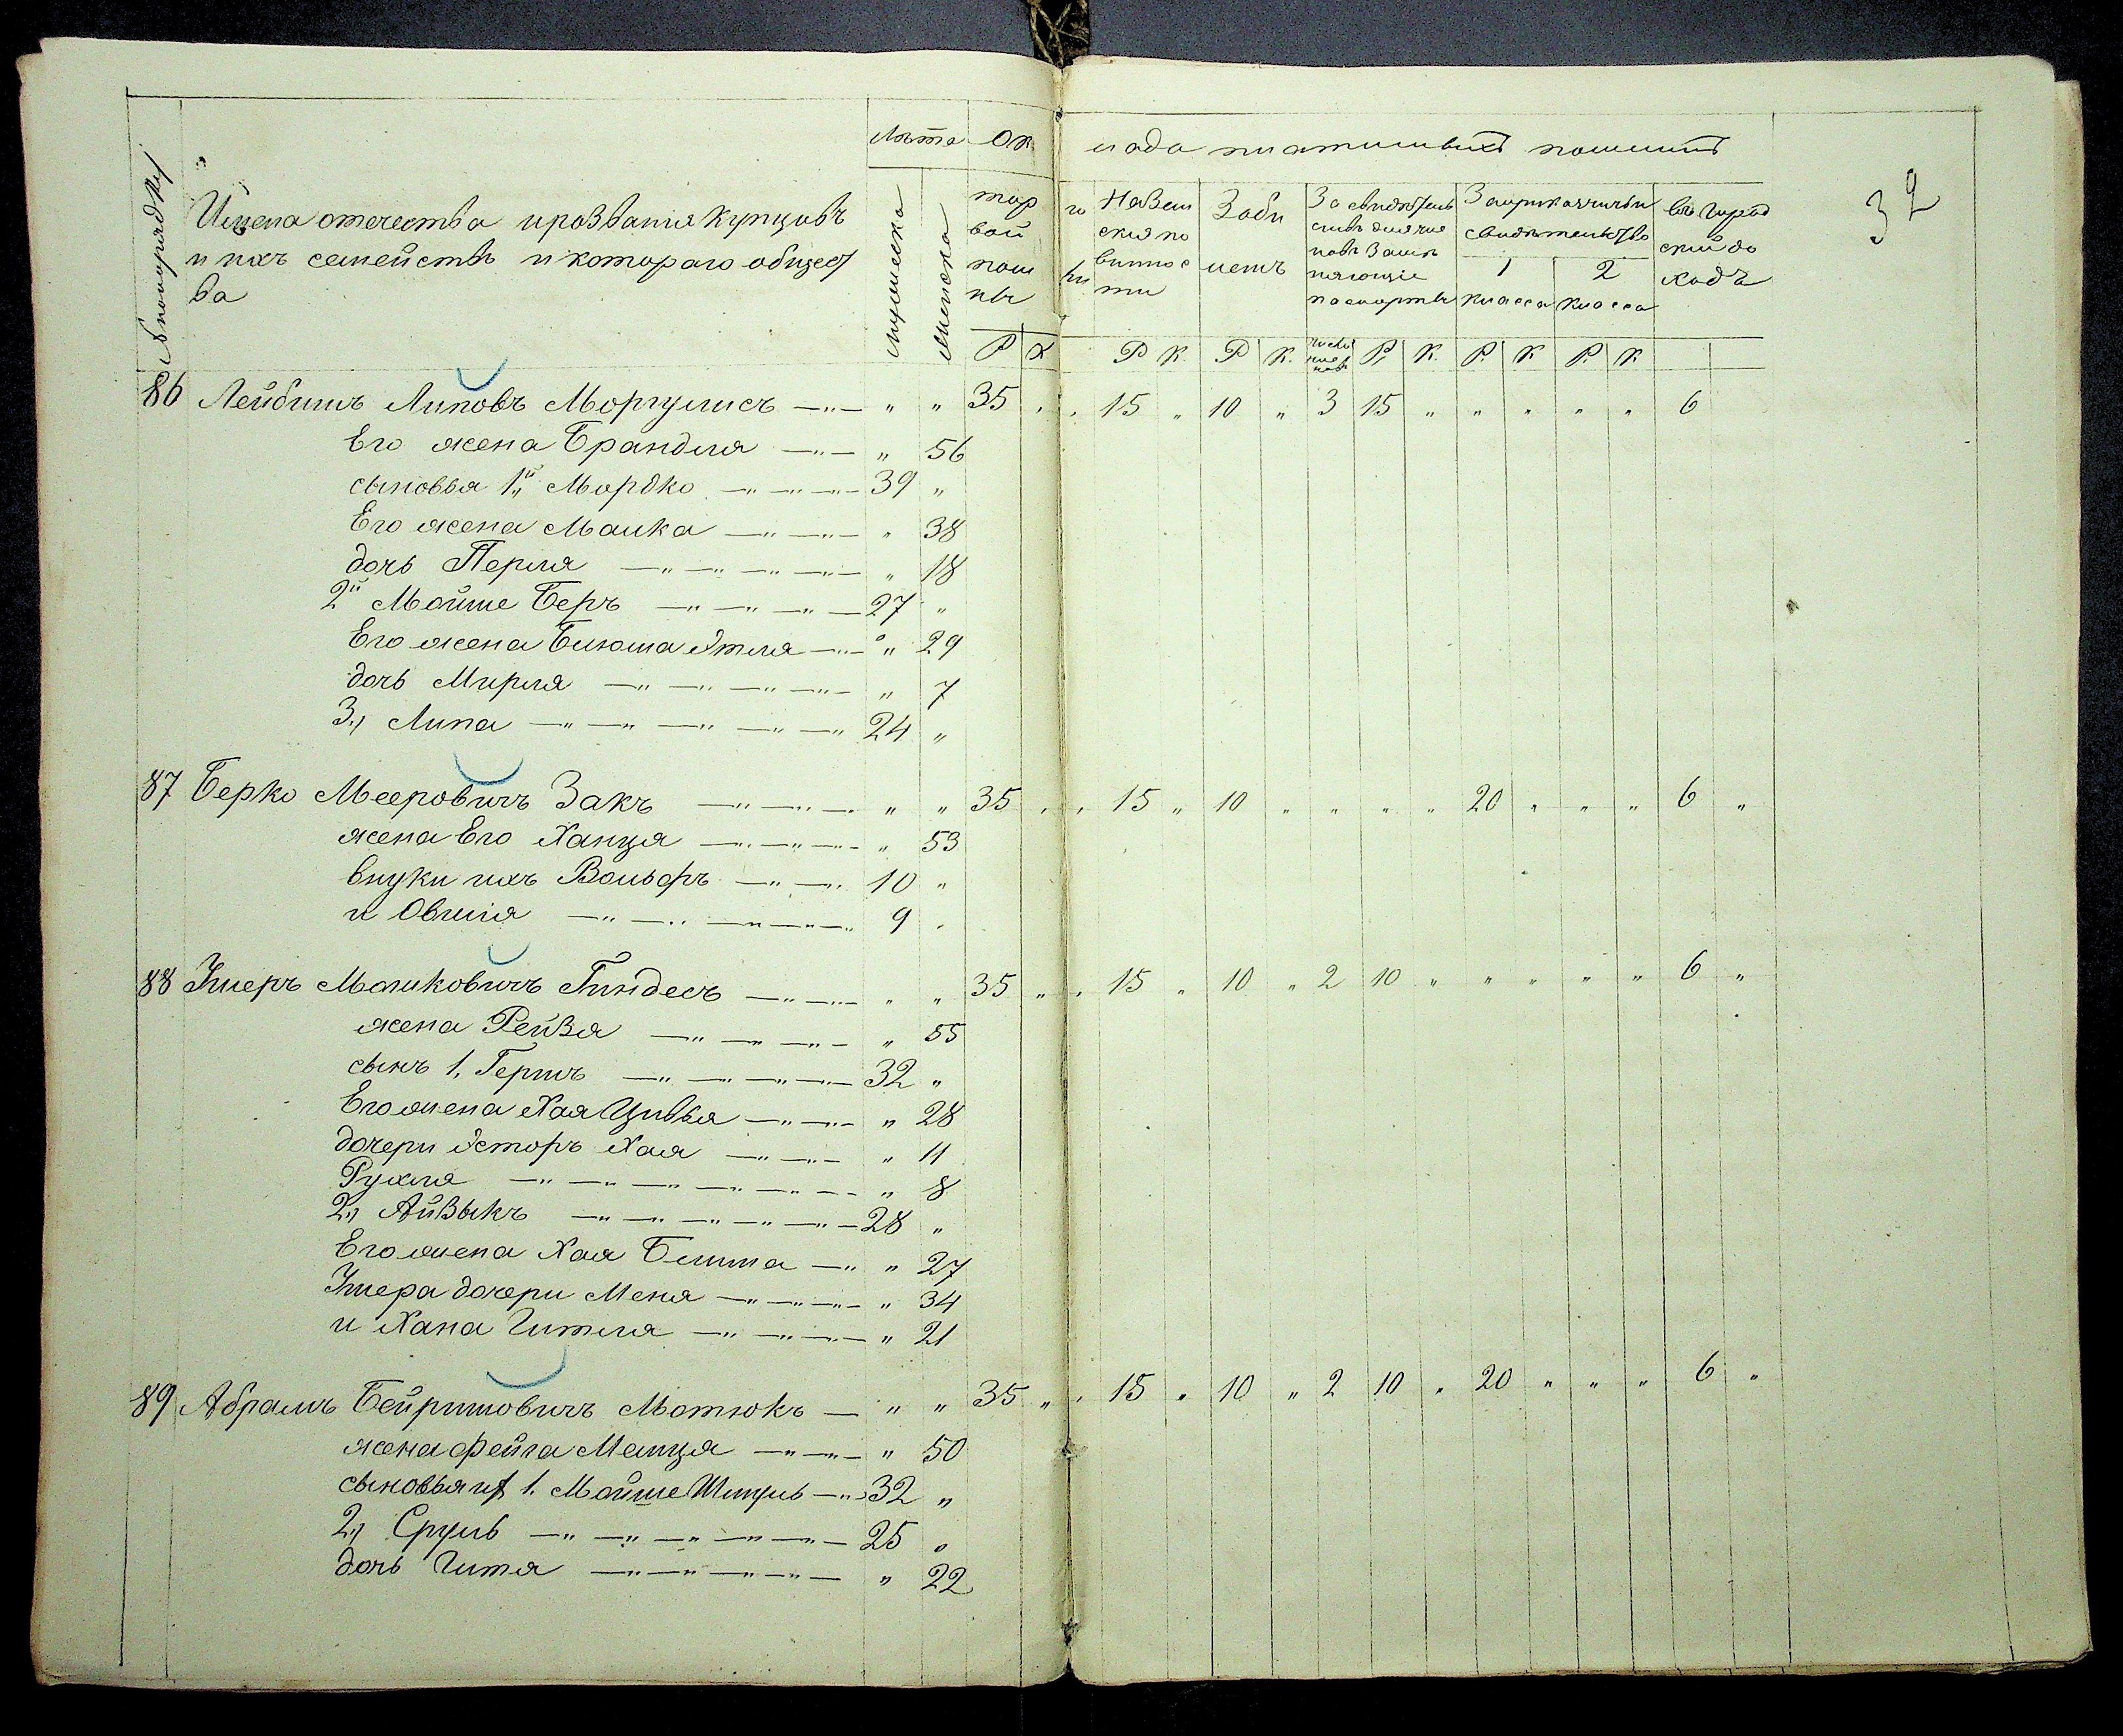 лѣта Ок лада платимыхъ пошлинъ
32
№ по порядку
Имена отечества и розванія купцовъ
и ихъ семействъ и котораго общест
ва
мужеска
женска
тор го
вой
пош ли
ны
На Зем
скія по
виннос
ти
За би
летъ
За свидѣтель
ства
паспорты
За прикащичьи
свидѣтельства
1 2
класса класса
въ город
ской до
ходъ
Р К Р К Р К Р. К. Р. К Р. К
86 Лейбишъ Липовъ Моргулисъ „ „ 35 „ 15 „ 10 „ 3 15 „ „ „ „ „ 6
Его жена Брандля „ 56
сыновья 1й Мордко 39 „
Его жена Малка „ 38
дочь Перля „ 18
2й Мойше Беръ 27 „
Его жена Блюма Этля „ 29
дочь Мирля „ 7
3„ Липа 24 „
87 Берко Мееровичъ Закъ „ „ 35 „ 15 „ 10 „ „ „ „ 20 „ „ „ 6 „
жена Его Ханця „ 53
внуки ихъ Вольфъ 10 „
и Овшія 9 „
88 Умеръ Малковичъ Гиндесъ „ „ 35 „ 15 „ 10 „ 2 10 „ „ „ „ „ 6 „
жена Рейзя „ 55
сынъ 1, Гершъ 32 „
Его жена Хая Цивья „ 28
дочери Эстеръ Хая „ 11
Рухля „ 8
2„ Айзыкъ 28 „
Его жена Хая Блима „ 27
Умера дочери Меня „ 34
и Хана Гитля „ 21
89 Абрамъ Бейришовичъ Мотюкъ „ „ 35 „ 15 „ 10 „ 2 10 „ 20 „ „ „ 6 „
жена Фейга Манця „ 50
сыновья их 1. Мойше Шмуль 32 „
2„ Сруль 25 „
дочь Гитя „ 22